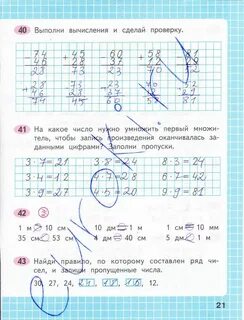 40 Выполни вычисления и сделай проверку.
74 45 60 58 81
46 28 37
28 73 23 70
28 73 23
46 28 37
74 45 60
41 На какое число нужно умножить первый множи-
тель, чтобы запись произведения оканчивалась за-
данными цифрами? Заполни пропуски.
3·7=21 3·8=24 8·3=24
3·4=12 4·7=28 6·7=42
3·9=27 4·5=20 9·9=81
42 3
1 м 10 см 4 дм 1 м 1 м 10 дм
35 см 53 см 4 дм 40 см 10 см 1 дм
43 Найди правило, по которому составлен ряд чи-
сел, и запиши пропущенные числа.
30, 27, 24, 21, 18, 15, 12.
21